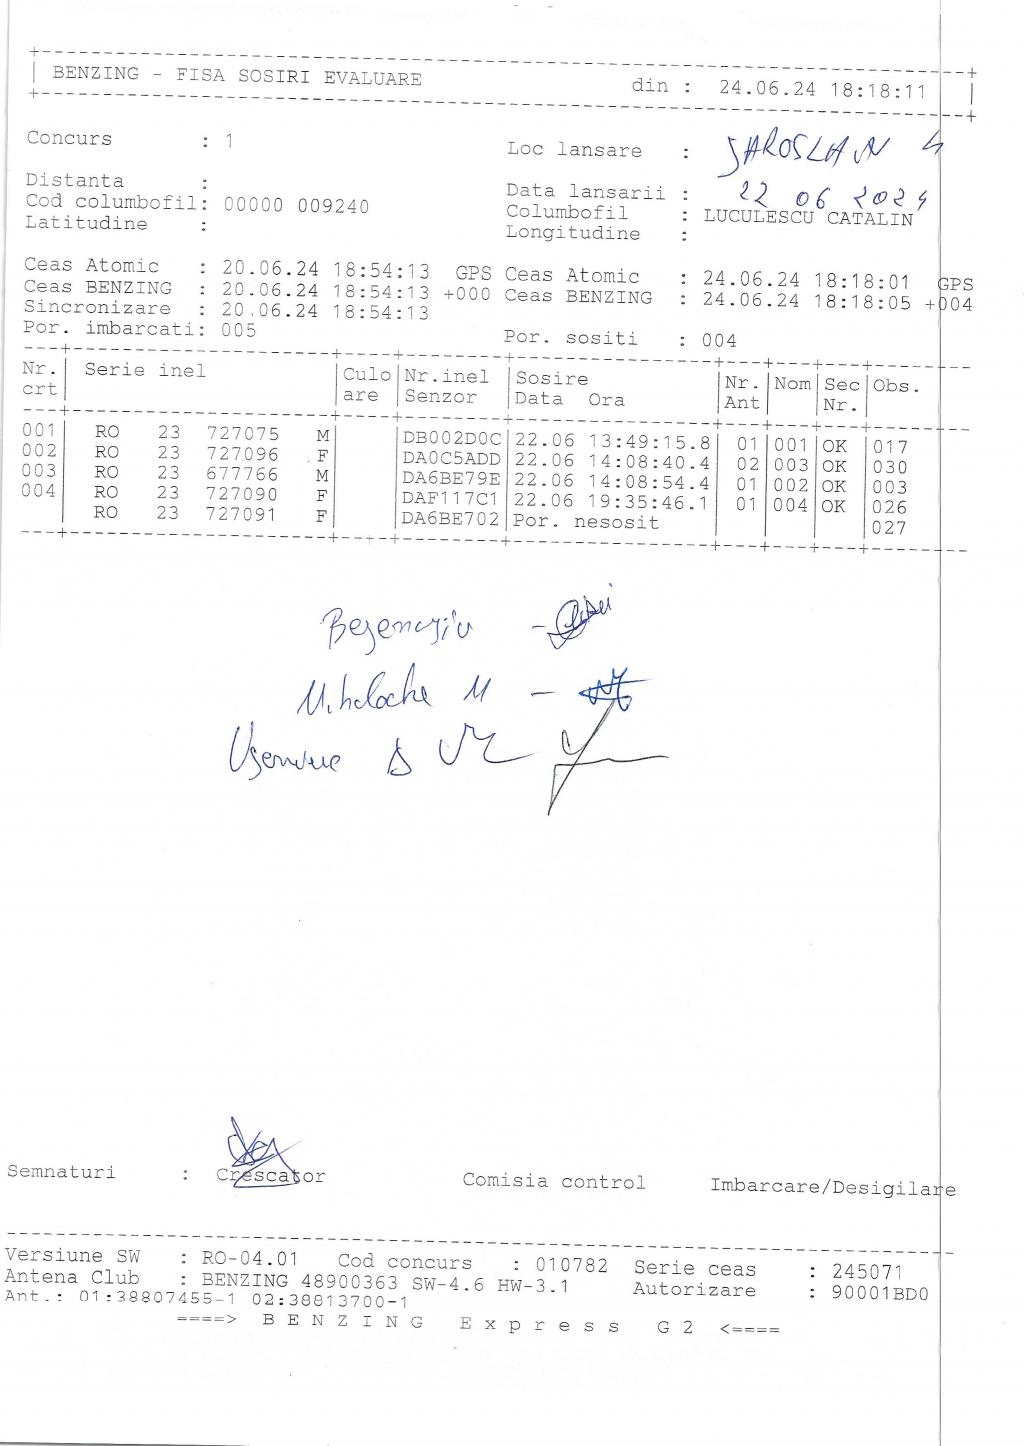 BENZING - FISA SOSIRI EVALUARE din : 24.06.24 18:18:11
Concurs : 1 Loc lansare : JAROSLAW 4
Distanta : Data lansarii : 22 06 2024
Cod columbofil: 00000 009240 Columbofil : LUCULESCU CATALIN
Latitudine : Longitudine :
Ceas Atomic : 20.06.24 18:54:13 GPS Ceas Atomic : 24.06.24 18:18:01 GPS
Ceas BENZING : 20.06.24 18:54:13 +000 Ceas BENZING : 24.06.24 18:18:05 +004
Sincronizare : 20.06.24 18:54:13
Por. imbarcati: 005 Por. sositi : 004
Nr. Serie inel Culo Nr.inel Sosire Nr. Nom Sec Obs.
crt are Senzor Data Ora Ant Nr.
001 RO 23 727075 M DB002D0C 22.06 13:49:15.8 01 001 OK 017
002 RO 23 727096 F DA0C5ADD 22.06 14:08:40.4 02 003 OK 030
003 RO 23 677766 M DA6BE79E 22.06 14:08:54.4 01 002 OK 003
004 RO 23 727090 F DAF117C1 22.06 19:35:46.1 01 004 OK 026
RO 23 727091 F DA6BE702 Por. nesosit 027
Mihalache M -
Semnaturi : Crescator Comisia control Imbarcare/Desigilare
Versiune SW : RO-04.01 Cod concurs : 010782 Serie ceas : 245071
Antena Club : BENZING 48900363 SW-4.6 HW-3.1 Autorizare : 90001BD0
Ant.: 01:38807455-1 02:38813700-1
====> B E N Z I N G E x p r e s s G 2 <====